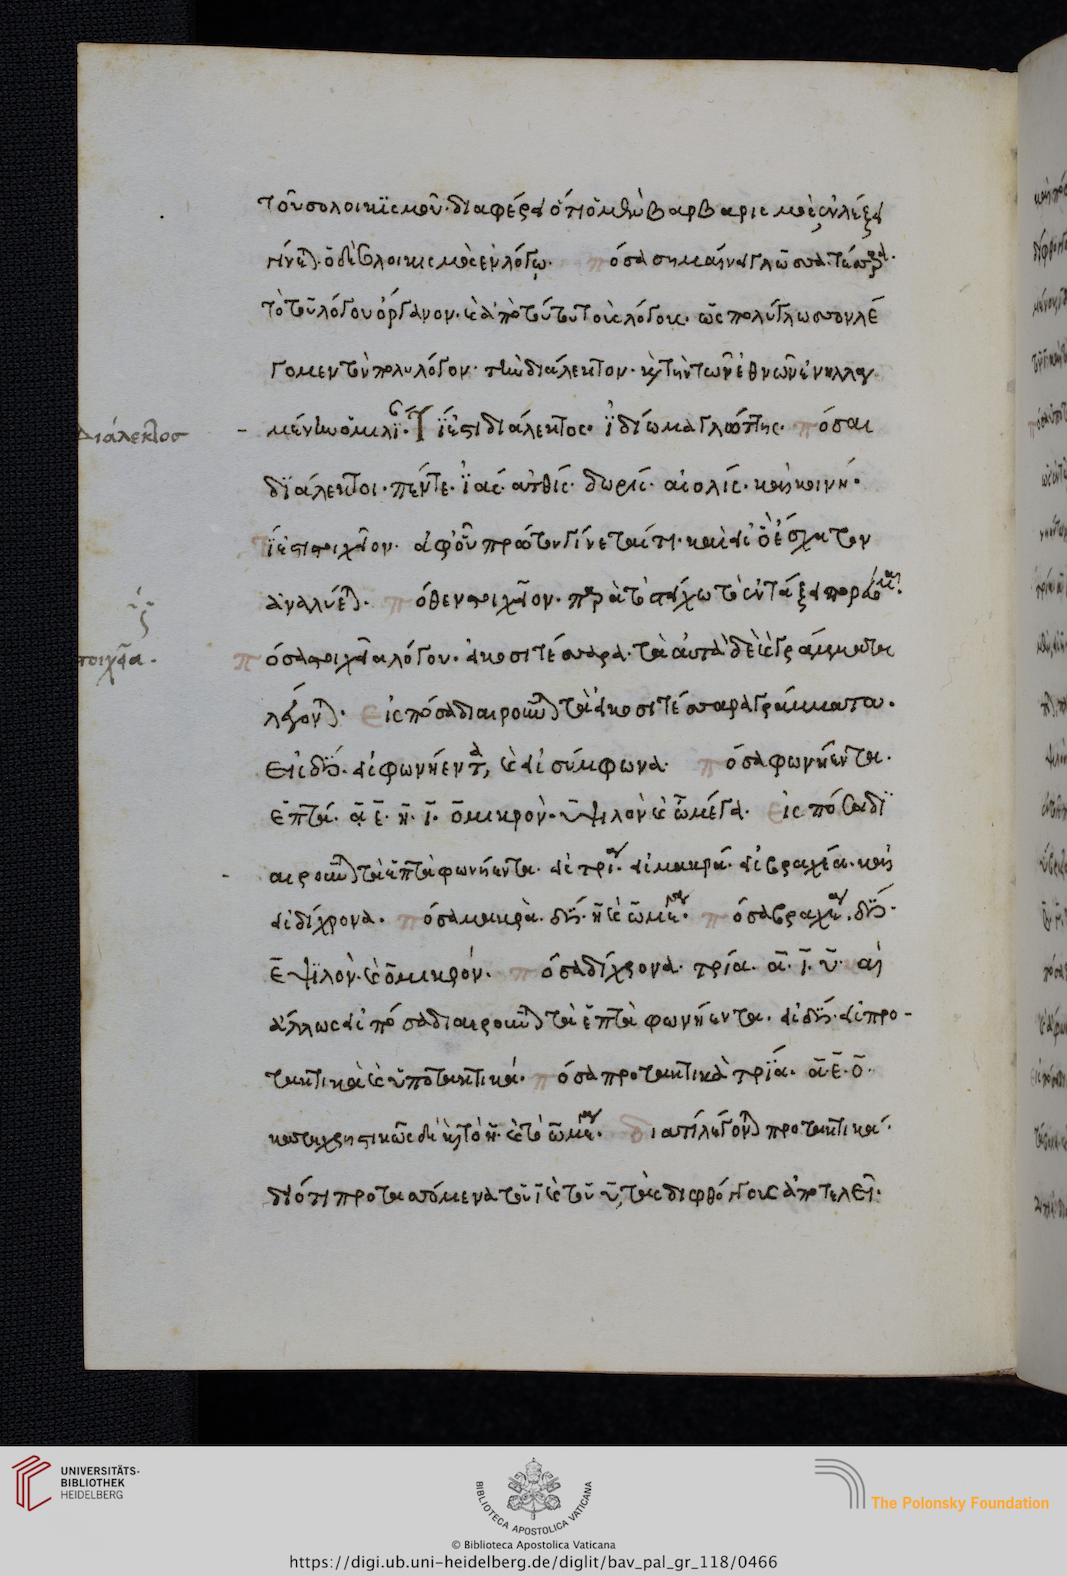 τοῦ σολοικισμοῦ· διαφέρει ὅτι ὁ μὲν βαρβαρισμὸς ἐν λέξει
γίνεται· ὁ δὲ σολοικισμὸς ἐν λόγω· πόσα σημαίνει γλῶσσα· τέσσαρα·
τὸ τοῦ λόγου ὄργανον· καὶ ἀπὸ τούτου τοὺς λόγους· ὡς πολύγλωσσον λέ
γομεν τὸν πολυλόγον· τὴν διάλεκτον· καὶ τὴν τῶν ἐθνῶν ἐνηλλαγ
Διάλεκτος
μένην ὁμιλίαν· Τί ἐστι διάλεκτος· ἰδίωμα γλώττης· πόσαι
διάλεκτοι· πέντε· ἰάς· ἀτθίς· δωρίς· αἰολίς· καὶ κοινή·
τί ἐστι στοιχεῖον· ἀφ' οὗ πρώτου γίνεταί τι· καὶ εἰς ὃ ἔσχατον
ἀναλύεται· πόθεν στοιχεῖον· παρὰ τὸ στείχω τὸ ἐν τάξει πορεύομαι·
πόσα στοιχεῖα λόγου· εἰκοσιτέσσαρα· τὰ αὐτὰ δὲ καὶ γράμματα
λέγονται· Εἰς πόσα διαιροῦνται τὰ εἰκοσιτέσσαρα γράμματα·
Εἰς δύο· εἰς φωνήεντα, καὶ εἰς σύμφωνα· πόσα φωνήεντα·
ἑπτά· ᾱ ε̄ η̄ ῑ ὂμικρὸν· ὐψιλὸν καὶ ὠμέγα· Εἰς πόσα δι
αιροῦνται τὰ ἑπτὰ φωνήεντα· εἰς τρία· εἰς μακρά· εἰς βραχέα· καὶ
εἰς δίχρονα· πόσα μακρὰ· δύο· η̄ καὶ ὠμέγα· πόσα βραχέα· δύο·
ἒψιλὸν· καὶ ὂμικρόν· πόσα δίχρονα· τρία· ᾱ· ῑ· ῡ· καὶ
ἄλλως εἰς πόσα διαιροῦνται τὰ ἑπτὰ φωνήεντα· εἰς δύο· εἰς προ-
τακτικὰ καὶ ὑποτακτικά· πόσα προτακτικὰ τρία· ᾱ· ε̄· ο̄·
καταχρηστικῶς δὲ καὶ τὸ η̄· καὶ τὸ ὠμέγα· διατί λέγονται προτακτικά·
διότι προτασσόμενα τοῦ ῑ καὶ τοῦ ῡ, τὰς διφθόγγους ἀποτελεῖ·
UNIVERSITÄTS-
BIBLIOTHEK
HEIDELBERG
BIBLIOTECA APOSTOLICA VATICANA
The Polonsky Foundation
© Biblioteca Apostolica Vaticana
https://digi.ub.uni-heidelberg.de/diglit/bav_pal_gr_118/0466